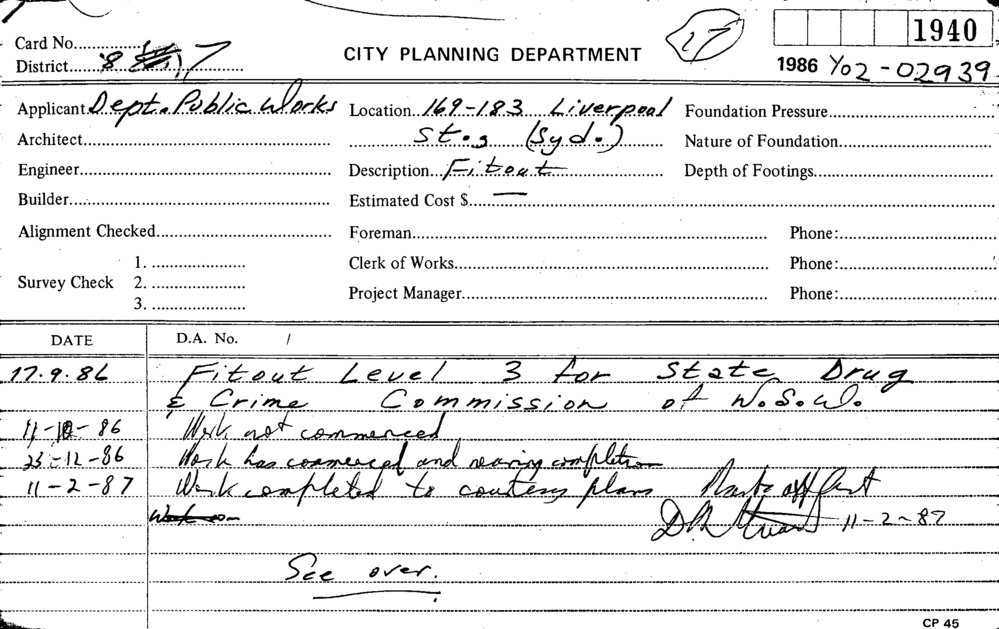 1940
Card No.
CITY PLANNING DEPARTMENT
27
District 8 7
1986 Y02-02939
Applicant Dept. Public Works Location 169-183 Liverpool Foundation Pressure
Architect St.s (Syd.) Nature of Foundation
Engineer Description Fitout Depth of Footings
Builder Estimated Cost $ —
Alignment Checked Foreman Phone:
1. Clerk of Works Phone:
Survey Check 2.
3. Project Manager Phone:
DATE D.A. No. /
17.9.86 Fitout Level 3 for State Drug
& Crime Commission of N.S.W.
11-10-86 Work not commenced
23-12-86 Work has commenced and nearing completion
11-2-87 Work completed to courtesy plans
11-2-87
See over.
CP 45